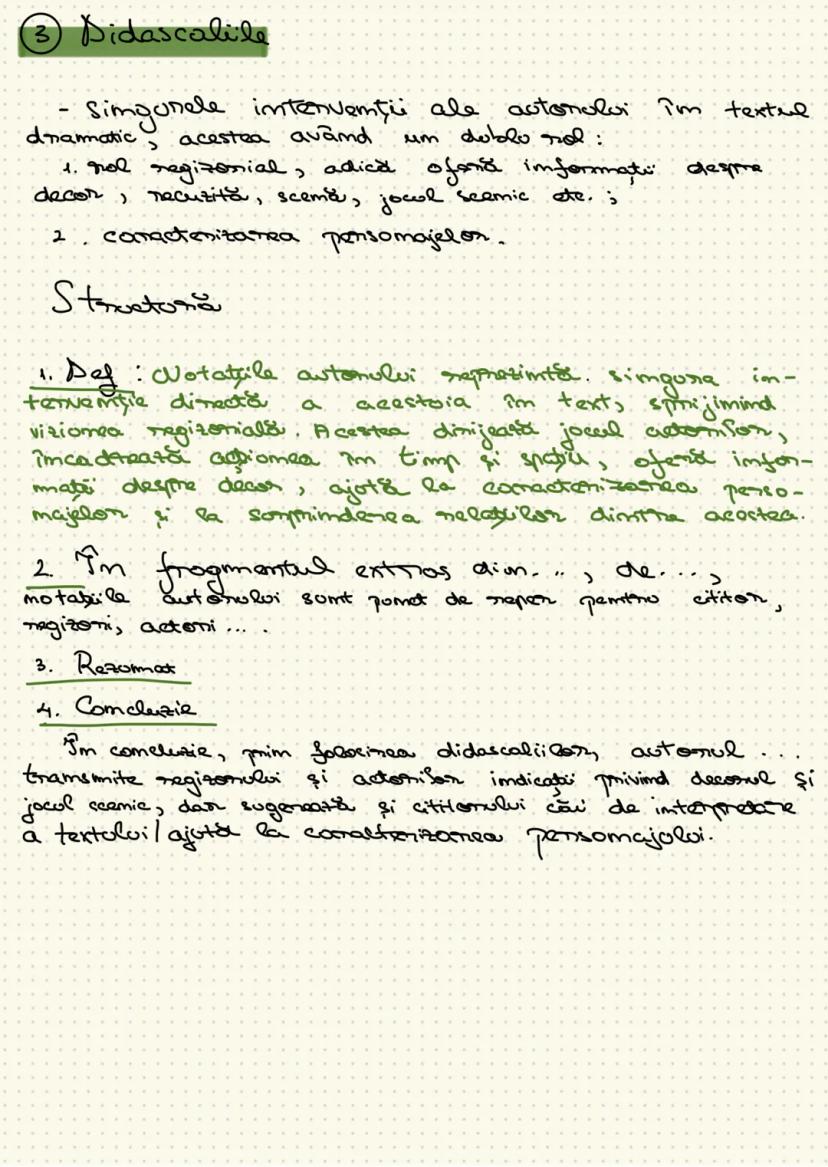 3 Didascaliile
- singurele intervenții ale autorului în textul
dramatic, acestea având un dublu rol:
1. rol regizorial, adică oferă informații despre
decor, recuzită, scenă, jocul scenic etc.;
2. caracterizarea personajelor.
Structură
1. Def: Notațiile autorului reprezintă singura in-
tervenție directă a acestuia în text, sprijinind
viziunea regizorială. Acestea dirijează jocul actorilor,
încadrează acțiunea în timp și spațiu, oferă infor-
mații despre decor, ajută la caracterizarea perso-
majelor și la surprinderea relațiilor dintre acestea.
2. În fragmentul extras din..., de...,
notațiile autorului sunt punct de reper pentru cititor,
regizori, actori ... .
3. Rezumat
4. Concluzie
În concluzie, prin folosirea didascaliilor, autorul ...
transmite regizorului și actorilor indicații privind decorul și
jocul scenic, dar sugerează și cititorului căi de interpretare
a textului/ ajută la caracterizarea personajului.